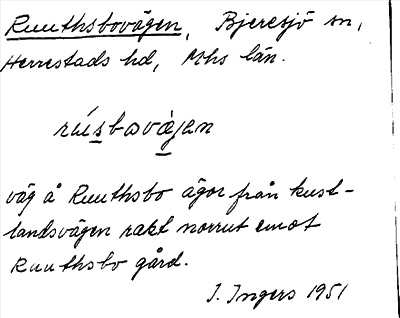 Ruuthsbovägen, Bjeresjö sn,
Herrestads hd, Mhs län.
rúsbovägen
väg å Ruuthsbo ägor från kust-
landsvägen rakt norrut emot
Ruuthsbo gård.
I. Ingers 1951